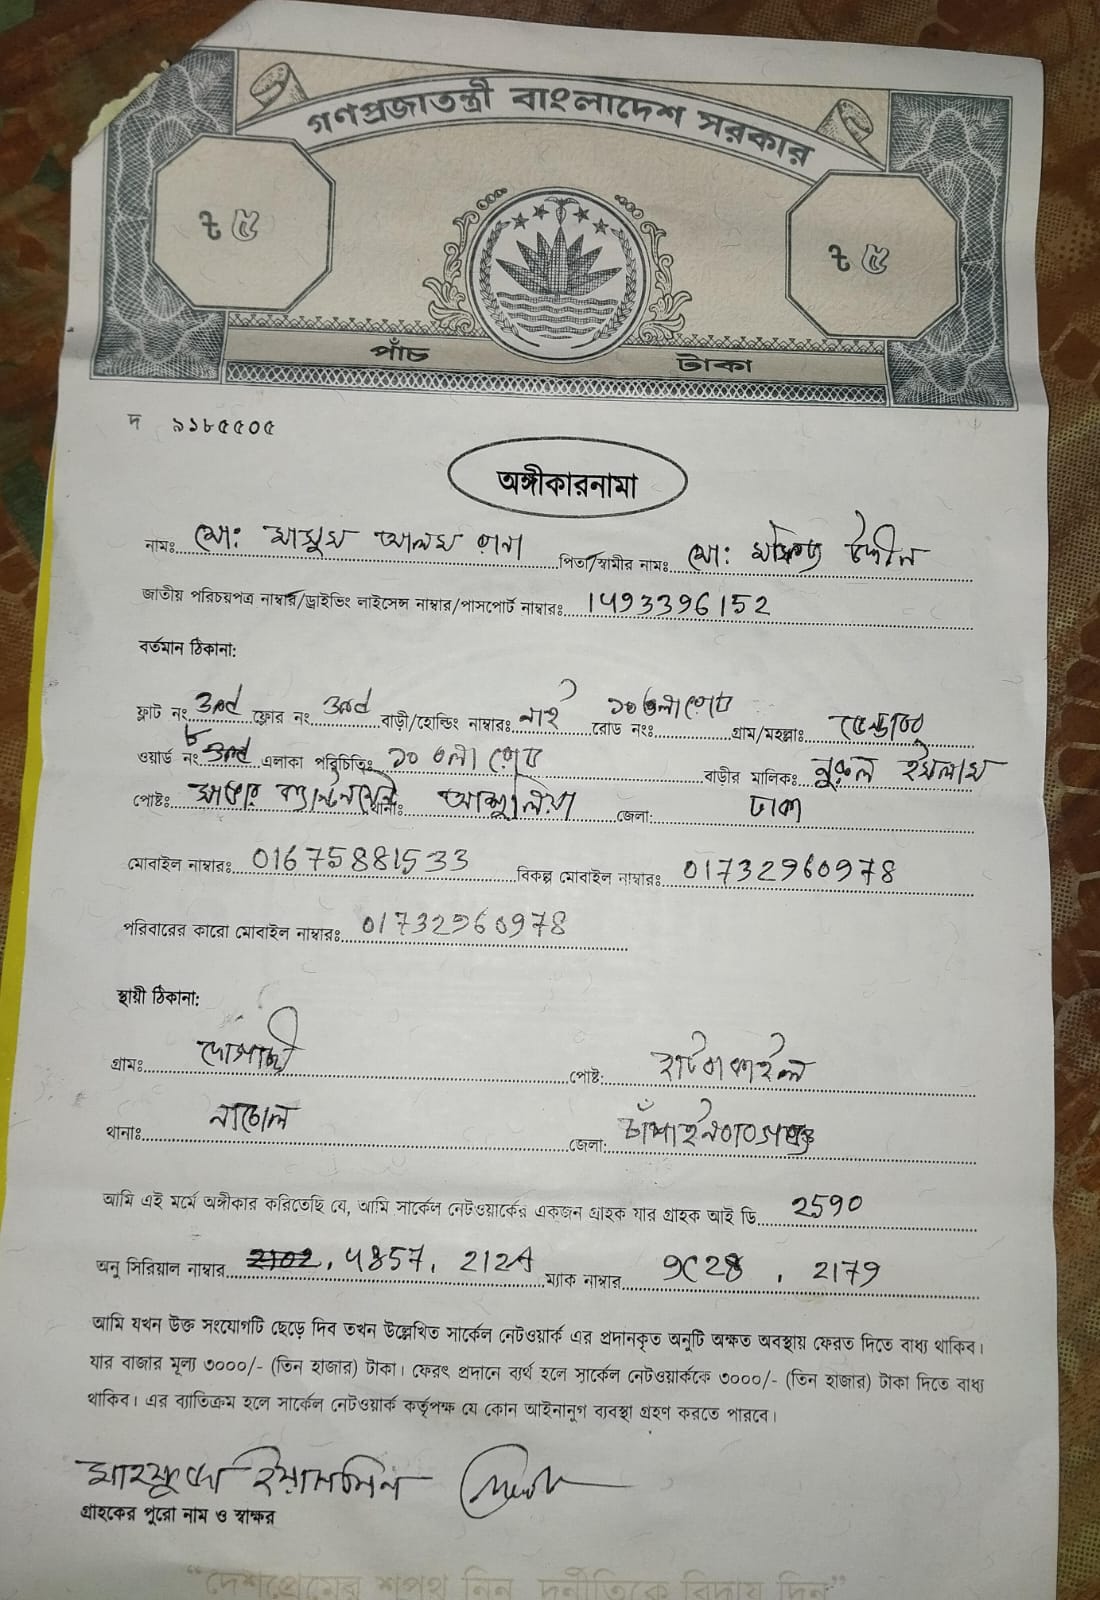 গণপ্রজাতন্ত্রী বাংলাদেশ সরকার
৳ ৫ ৳ ৫
পাঁচ টাকা
দ ৯১৮৫৫০৫
অঙ্গীকারনামা
নামঃ মো: মাসুম আলম রানা পিতা/স্বামীর নামঃ মো: মফিজ উদ্দীন
জাতীয় পরিচয়পত্র নাম্বার/ড্রাইভিং লাইসেন্স নাম্বার/পাসপোর্ট নাম্বারঃ 1493396152
বর্তমান ঠিকানা:
ফ্লাট নং 3rd ফ্লোর নং 3rd বাড়ী/হোল্ডিং নাম্বারঃ নাই রোড নংঃ ১০ তলা গ্রাম/মহল্লাঃ
ওয়ার্ড নং 3rd এলাকা পরিচিতিঃ ১০ তলা বাড়ীর মালিকঃ নুরুল ইসলাম
পোষ্টঃ সাভার ক্যান্টনমেন্ট থানাঃ আশুলিয়া জেলা: ঢাকা
মোবাইল নাম্বারঃ 01675881533 বিকল্প মোবাইল নাম্বারঃ 01732960978
পরিবারের কারো মোবাইল নাম্বারঃ 01732960978
স্থায়ী ঠিকানা:
গ্রামঃ পোষ্ট: হাটবাকইল
থানাঃ নাচোল জেলা: চাঁপাইনবাবগঞ্জ
আমি এই মর্মে অঙ্গীকার করিতেছি যে, আমি সার্কেল নেটওয়ার্কের একজন গ্রাহক যার গ্রাহক আই ডি 2590
অনু সিরিয়াল নাম্বার 2102, 4857, 212A ম্যাক নাম্বার 9C28, 2179
আমি যখন উক্ত সংযোগটি ছেড়ে দিব তখন উল্লেখিত সার্কেল নেটওয়ার্ক এর প্রদানকৃত অনুটি অক্ষত অবস্থায় ফেরত দিতে বাধ্য থাকিব।
যার বাজার মূল্য ৩০০০/- (তিন হাজার) টাকা। ফেরৎ প্রদানে ব্যর্থ হলে সার্কেল নেটওয়ার্ককে ৩০০০/- (তিন হাজার) টাকা দিতে বাধ্য
থাকিব। এর ব্যাতিক্রম হলে সার্কেল নেটওয়ার্ক কর্তৃপক্ষ যে কোন আইনানুগ ব্যবস্থা গ্রহণ করতে পারবে।
মাহফুজা ইয়াসমিন
গ্রাহকের পুরো নাম ও স্বাক্ষর
“দেশপ্রেমের শপথ নিন, দুর্নীতিকে বিদায় দিন”